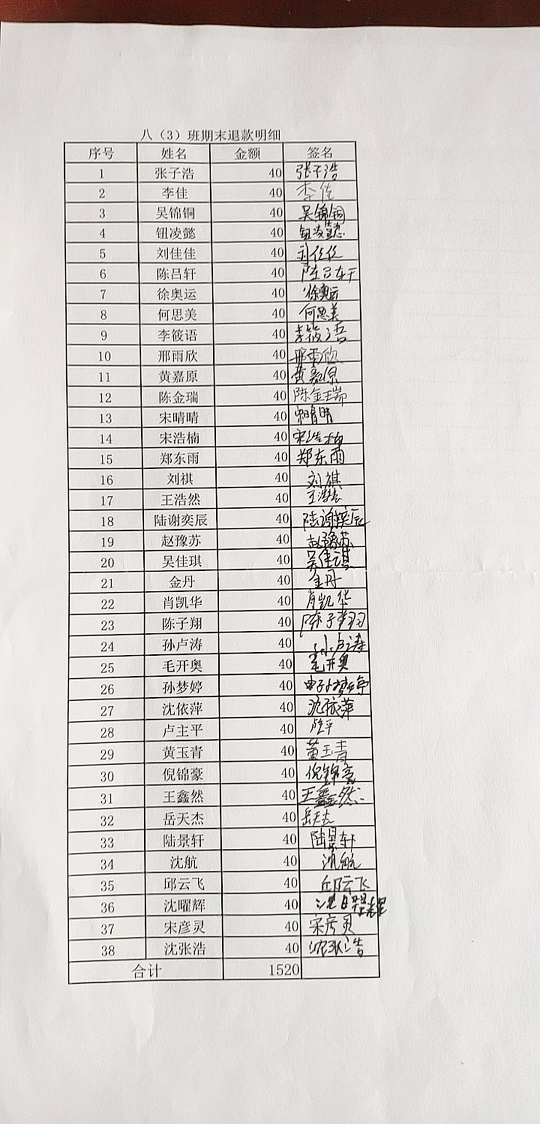 八（3）班期末退款明细
序号 姓名 金额 签名
1 张子浩 40 张子浩
2 李佳 40 李佳
3 吴锦铜 40 吴锦铜
4 钮凌懿 40 钮凌懿
5 刘佳佳 40 刘佳佳
6 陈吕轩 40 陈吕轩
7 徐奥运 40 徐奥运
8 何思美 40 何思美
9 李筱语 40 李筱语
10 邢雨欣 40 邢雨欣
11 黄嘉原 40 黄嘉原
12 陈金瑞 40 陈金瑞
13 宋晴晴 40 宋晴晴
14 宋浩楠 40 宋浩楠
15 郑东雨 40 郑东雨
16 刘祺 40 刘祺
17 王浩然 40 王浩然
18 陆谢奕辰 40 陆谢奕辰
19 赵豫苏 40 赵豫苏
20 吴佳琪 40 吴佳琪
21 金丹 40 金丹
22 肖凯华 40 肖凯华
23 陈子翔 40 陈子翔
24 孙卢涛 40 孙卢涛
25 毛开奥 40 毛开奥
26 孙梦婷 40
27 沈依萍 40 沈依萍
28 卢主平 40
29 黄玉青 40 黄玉青
30 倪锦豪 40 倪锦豪
31 王鑫然 40 王鑫然
32 岳天杰 40 岳天杰
33 陆景轩 40 陆景轩
34 沈航 40 沈航
35 邱云飞 40 邱云飞
36 沈曜辉 40 沈曜辉
37 宋彦灵 40 宋彦灵
38 沈张浩 40 沈张浩
合计 1520